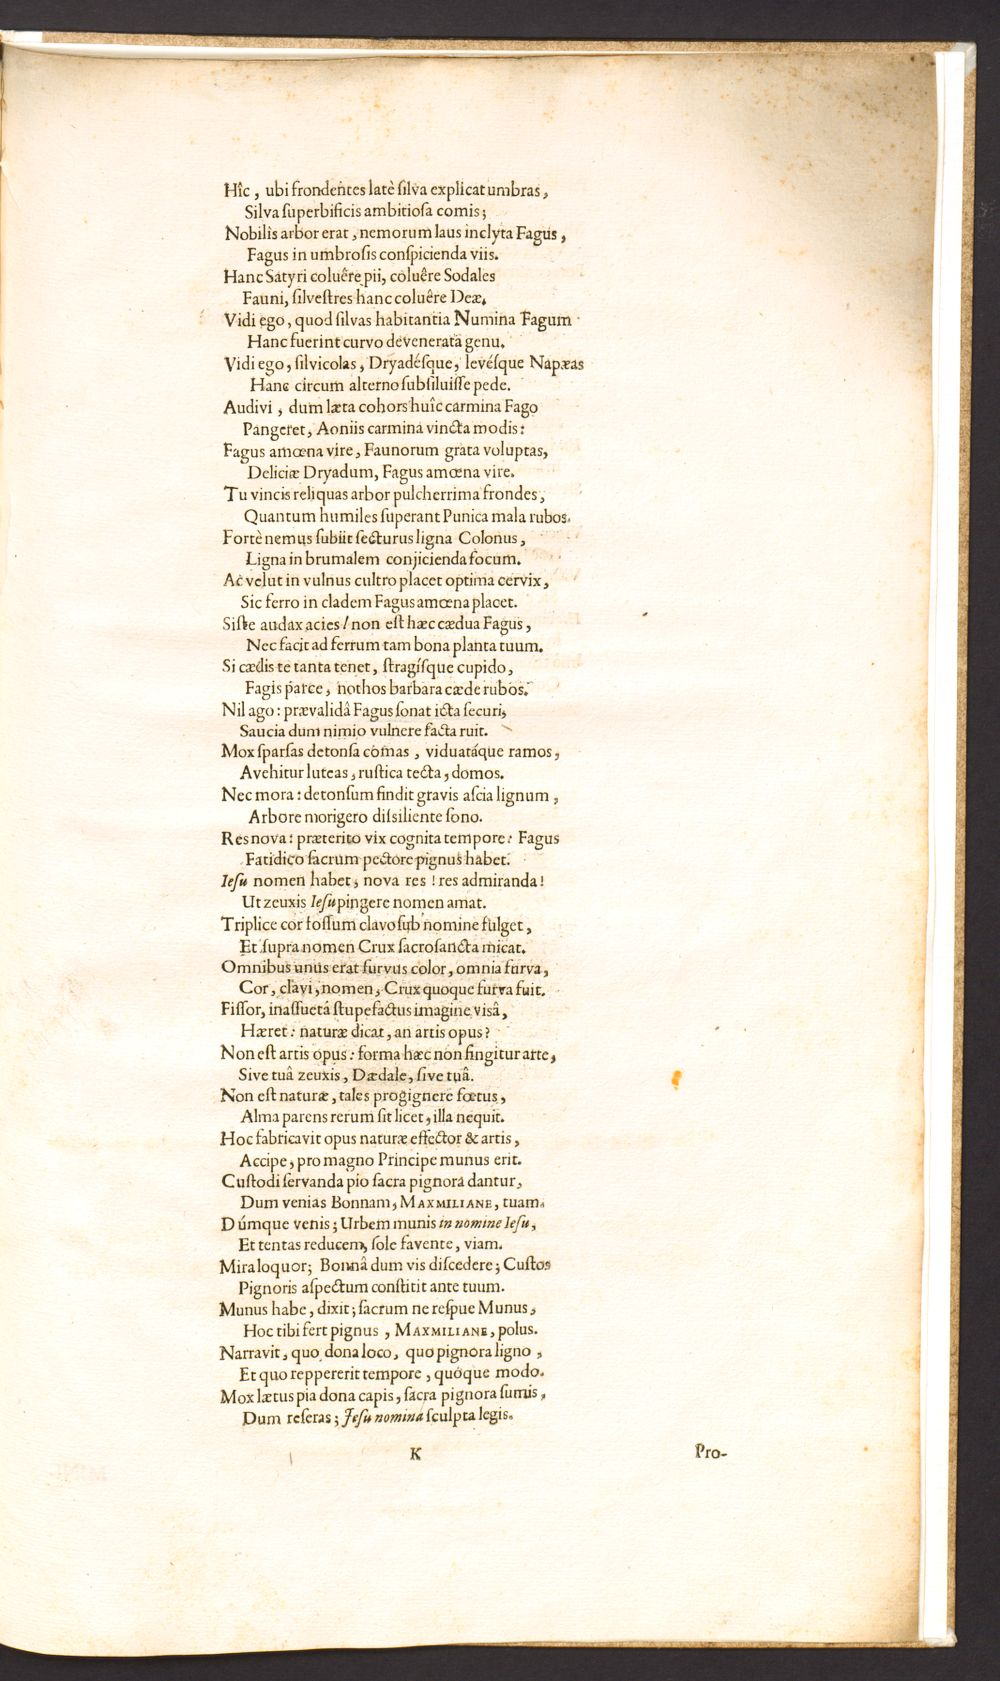 Hîc, ubi frondentes latè ſilva explicat umbras,
Silva ſuperbificis ambitioſa comis;
Nobilis arbor erat, nemorum laus inclyta Fagus,
Fagus in umbroſis conſpicienda viis.
Hanc Satyri coluêre pii, coluêre Sodales
Fauni, ſilveſtres hanc coluêre Deæ.
Vidi ego, quod ſilvas habitantia Numina Fagum
Hanc fuerint curvo devenerata genu.
Vidi ego, ſilvicolas, Dryadéſque, levéſque Napæas
Hanc circum alterno ſubſiluiſſe pede.
Audivi, dum læta cohors huîc carmina Fago
Pangeret, Aoniis carmina vincta modis:
Fagus amœna vire, Faunorum grata voluptas,
Deliciæ Dryadum, Fagus amœna vire.
Tu vincis reliquas arbor pulcherrima frondes,
Quantum humiles ſuperant Punica mala rubos.
Fortè nemus ſubiit ſecturus ligna Colonus,
Ligna in brumalem conjicienda focum.
Ac velut in vulnus cultro placet optima cervix,
Sic ferro in cladem Fagus amœna placet.
Siſte audax acies! non eſt hæc cædua Fagus,
Nec facit ad ferrum tam bona planta tuum.
Si cædis te tanta tenet, ſtragíſque cupido,
Fagis parce, nothos barbara cæde rubos.
Nil ago: prævalidâ Fagus ſonat icta ſecuri,
Saucia dum nimio vulnere facta ruit.
Mox ſparſas detonſa comas, viduatáque ramos,
Avehitur luteas, ruſtica tecta, domos.
Nec mora: detonſum findit gravis aſcia lignum,
Arbore morigero diſsiliente ſono.
Res nova: præterito vix cognita tempore: Fagus
Fatidico ſacrum pectore pignus habet.
Ieſu nomen habet, nova res! res admiranda!
Ut zeuxis Ieſu pingere nomen amat.
Triplice cor foſſum clavo ſub nomine fulget,
Et ſupra nomen Crux ſacroſancta micat.
Omnibus unus erat furvus color, omnia furva,
Cor, clavi, nomen, Crux quoque furva fuit.
Fiſſor, inaſſuetâ ſtupefactus imagine visâ,
Hæret: naturæ dicat, an artis opus?
Non eſt artis opus: forma hæc non fingitur arte,
Sive tuâ zeuxis, Dædale, ſive tuâ.
Non eſt naturæ, tales progignere fœtus,
Alma parens rerum ſit licet, illa nequit.
Hoc fabricavit opus naturæ effector & artis,
Accipe, pro magno Principe munus erit.
Cuſtodi ſervanda pio ſacra pignora dantur,
Dum venias Bonnam, MAXMILIANE, tuam.
Dúmque venis; Urbem munis in nomine Ieſu,
Et tentas reducem, ſole favente, viam.
Mira loquor; Bonnâ dum vis diſcedere; Cuſtos
Pignoris aſpectum conſtitit ante tuum.
Munus habe, dixit; ſacrum ne reſpue Munus,
Hoc tibi fert pignus, MAXMILIANE, polus.
Narravit, quo dona loco, quo pignora ligno,
Et quo reppererit tempore, quóque modo.
Mox lætus pia dona capis, ſacra pignora ſumis,
Dum reſeras; Jeſu nomina ſculpta legis.
K
Pro-